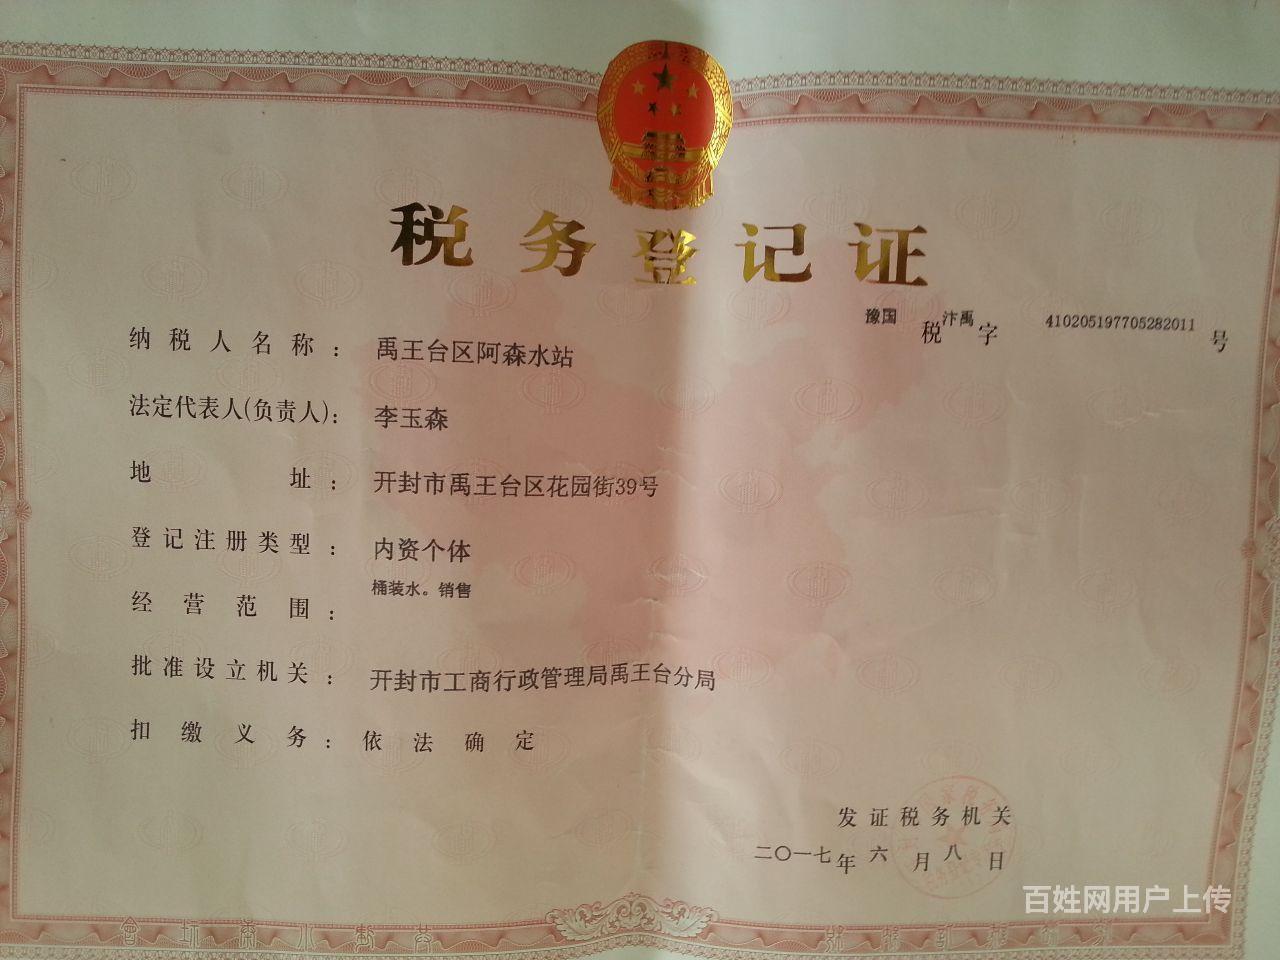 税务登记证
豫国税汴禹字410205197705282011号
纳税人名称：禹王台区阿森水站
法定代表人(负责人)：李玉森
地址：开封市禹王台区花园街39号
登记注册类型：内资个体
经营范围：桶装水。销售
批准设立机关：开封市工商行政管理局禹王台分局
扣缴义务：依法确定
发证税务机关
二〇一七年六月八日
百姓网用户上传